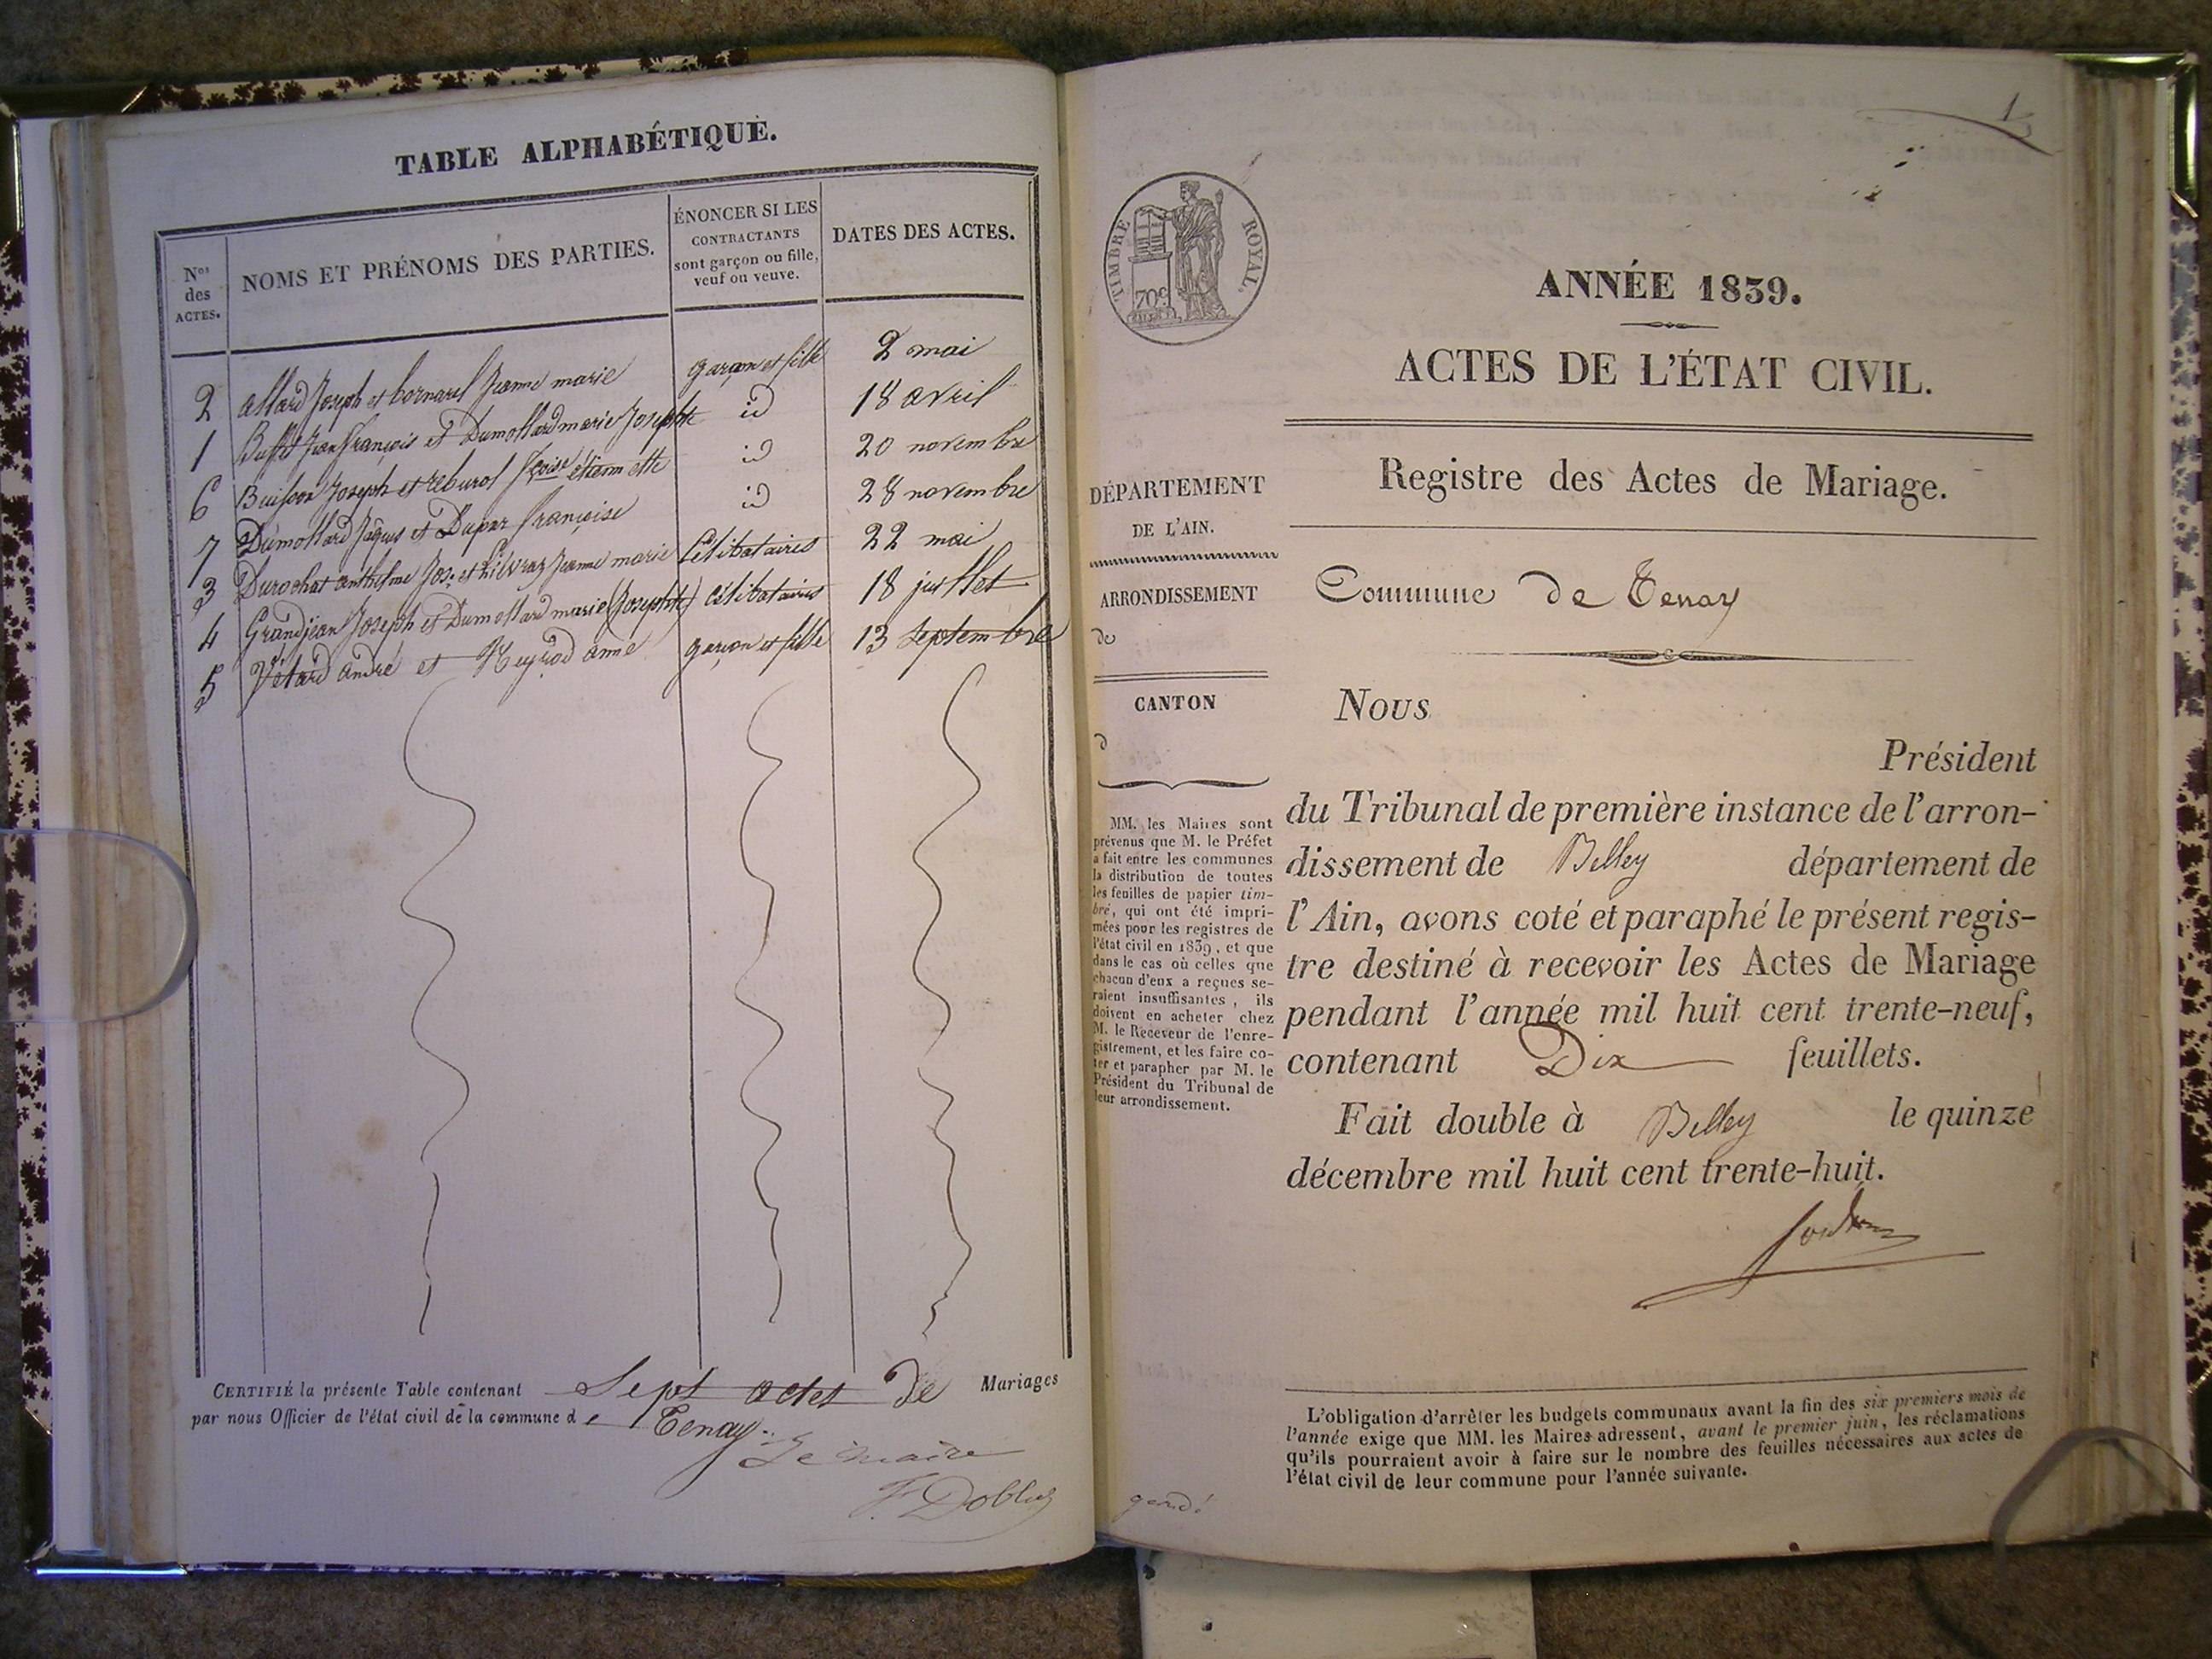 TABLE ALPHABÉTIQUE.
Nos des ACTES.
NOMS ET PRÉNOMS DES PARTIES.
ÉNONCER SI LES
CONTRACTANTS
sont garçon ou fille,
veuf ou veuve.
DATES DES ACTES.
2 allard Joseph et bornarel Jeanne marie garçon et fille 2 mai
1 Buffet Jean François et Dumollard marie Josephte id 18 avril
6 Buisson Joseph et reburol fçoise étiennette id 20 novembre
7 Dumollard Jâques et Dupar françoise id 28 novembre
3 Durochat anthelme Jos. et Jeanne marie Célibataires 22 mai
4 Grandjean Joseph et Dumollard marie (Josephte) célibataires 18 juillet
5 Vétard andré et anne garçon et fille 13 septembre
CERTIFIÉ la présente Table contenant Sept actes de Mariages
par nous Officier de l'état civil de la commune de Tenay.
Le maire
1
TIMBRE ROYAL.
70c
ANNÉE 1839.
ACTES DE L'ÉTAT CIVIL.
Registre des Actes de Mariage.
DÉPARTEMENT
DE L'AIN.
ARRONDISSEMENT
de
CANTON
d
MM. les Maires sont
prévenus que M. le Préfet
a fait entre les communes
la distribution de toutes
les feuilles de papier tim-
bré, qui ont été impri-
mées pour les registres de
l'état civil en 1839, et que
dans le cas où celles que
chacun d'eux a reçues se-
raient insuffisantes, ils
doivent en acheter chez
M. le Receveur de l'enre-
gistrement, et les faire co-
ter et parapher par M. le
Président du Tribunal de
leur arrondissement.
Commune de Tenay
Nous
Président
du Tribunal de première instance de l'arron-
dissement de Belley département de
l'Ain, avons coté et paraphé le présent regis-
tre destiné à recevoir les Actes de Mariage
pendant l'année mil huit cent trente-neuf,
contenant Dix feuillets.
Fait double à Belley le quinze
décembre mil huit cent trente-huit.
L'obligation d'arrêter les budgets communaux avant la fin des six premiers mois de
l'année exige que MM. les Maires adressent, avant le premier juin, les réclamations
qu'ils pourraient avoir à faire sur le nombre des feuilles nécessaires aux actes de
l'état civil de leur commune pour l'année suivante.